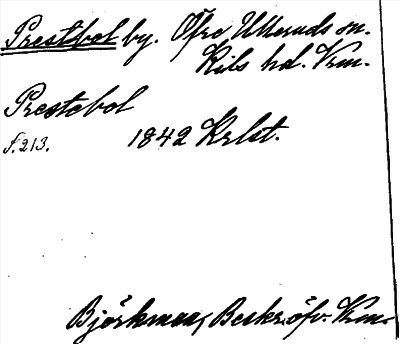 Prestbol by. Öfre Ulleruds sn.
Kils hd. Vrm.
Prestebol
s. 213. 1842 Krlst.
Björkman, Beskr. öfv. Vrm.